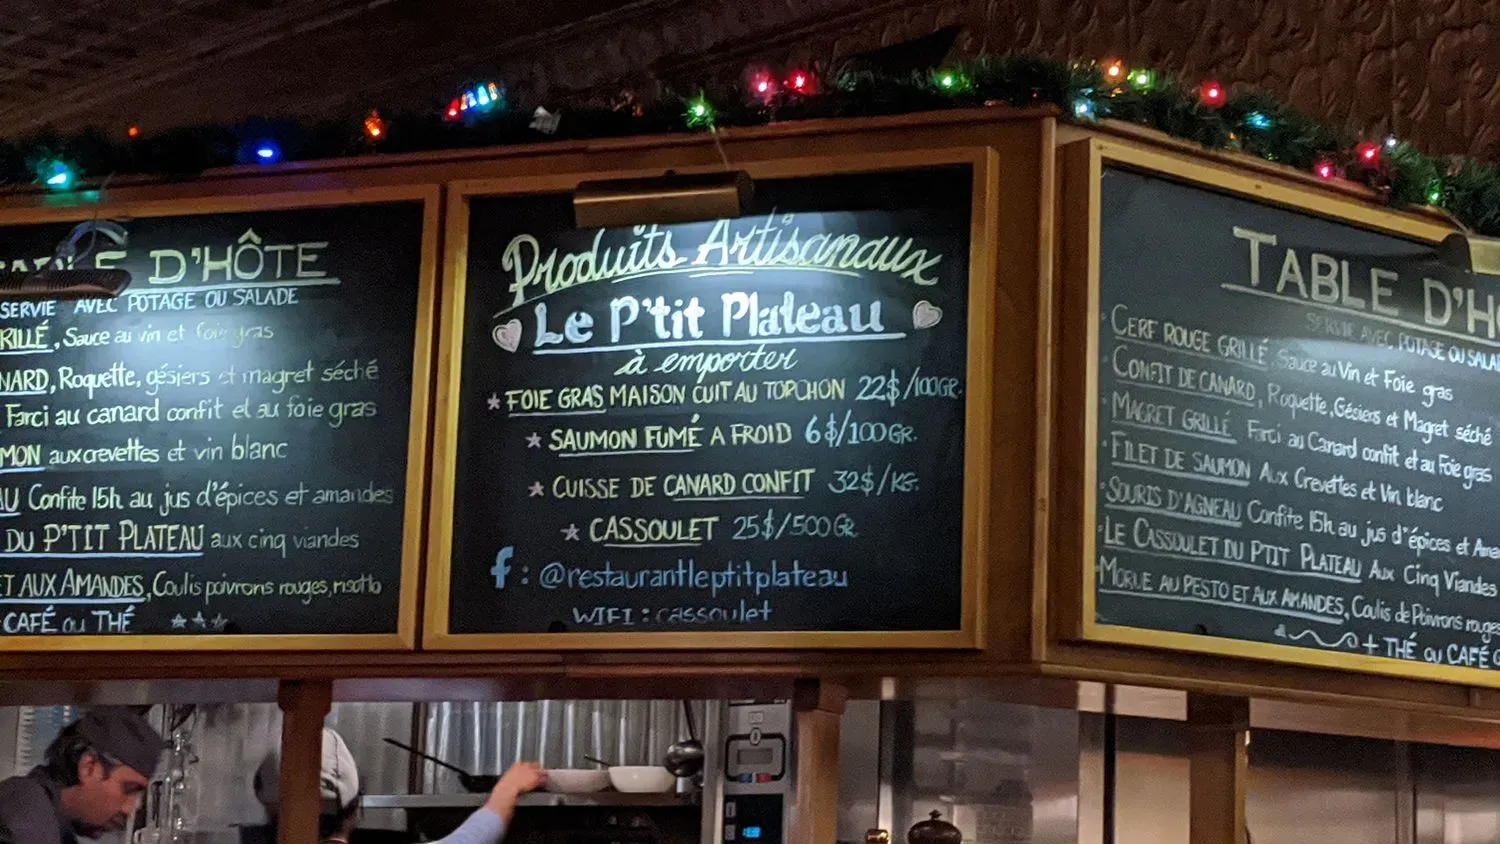 TABLE D'HÔTE
SERVIE AVEC POTAGE OU SALADE
RILLÉ, Sauce au vin et foie gras
NARD, Roquette, gésiers et magret séché
Farci au canard confit et au foie gras
MON aux crevettes et vin blanc
AU Confite 15h au jus d'épices et amandes
DU P'TIT PLATEAU aux cinq viandes
ET AUX AMANDES, Coulis poivrons rouges, risotto
CAFÉ ou THÉ
Produits Artisanaux
Le P'tit Plateau
à emporter
FOIE GRAS MAISON CUIT AU TORCHON 22$/100GR.
SAUMON FUMÉ A FROID 6$/100GR.
CUISSE DE CANARD CONFIT 32$/KG.
CASSOULET 25$/500GR
f : @restaurantleptitplateau
WIFI : cassoulet
TABLE D'HÔ
SERVIE AVEC POTAGE OU SALAD
CERF ROUGE GRILLÉ, Sauce au Vin et Foie gras
CONFIT DE CANARD, Roquette, Gésiers et Magret séché
MAGRET GRILLÉ Farci au Canard confit et au Foie gras
FILET DE SAUMON Aux Crevettes et Vin blanc
SOURIS D'AGNEAU Confite 15h. au jus d'épices et Ama
LE CASSOULET DU P'TIT PLATEAU Aux Cinq Viandes
MORUE AU PESTO ET AUX AMANDES, Coulis de Poivrons rouges
+ THÉ ou CAFÉ